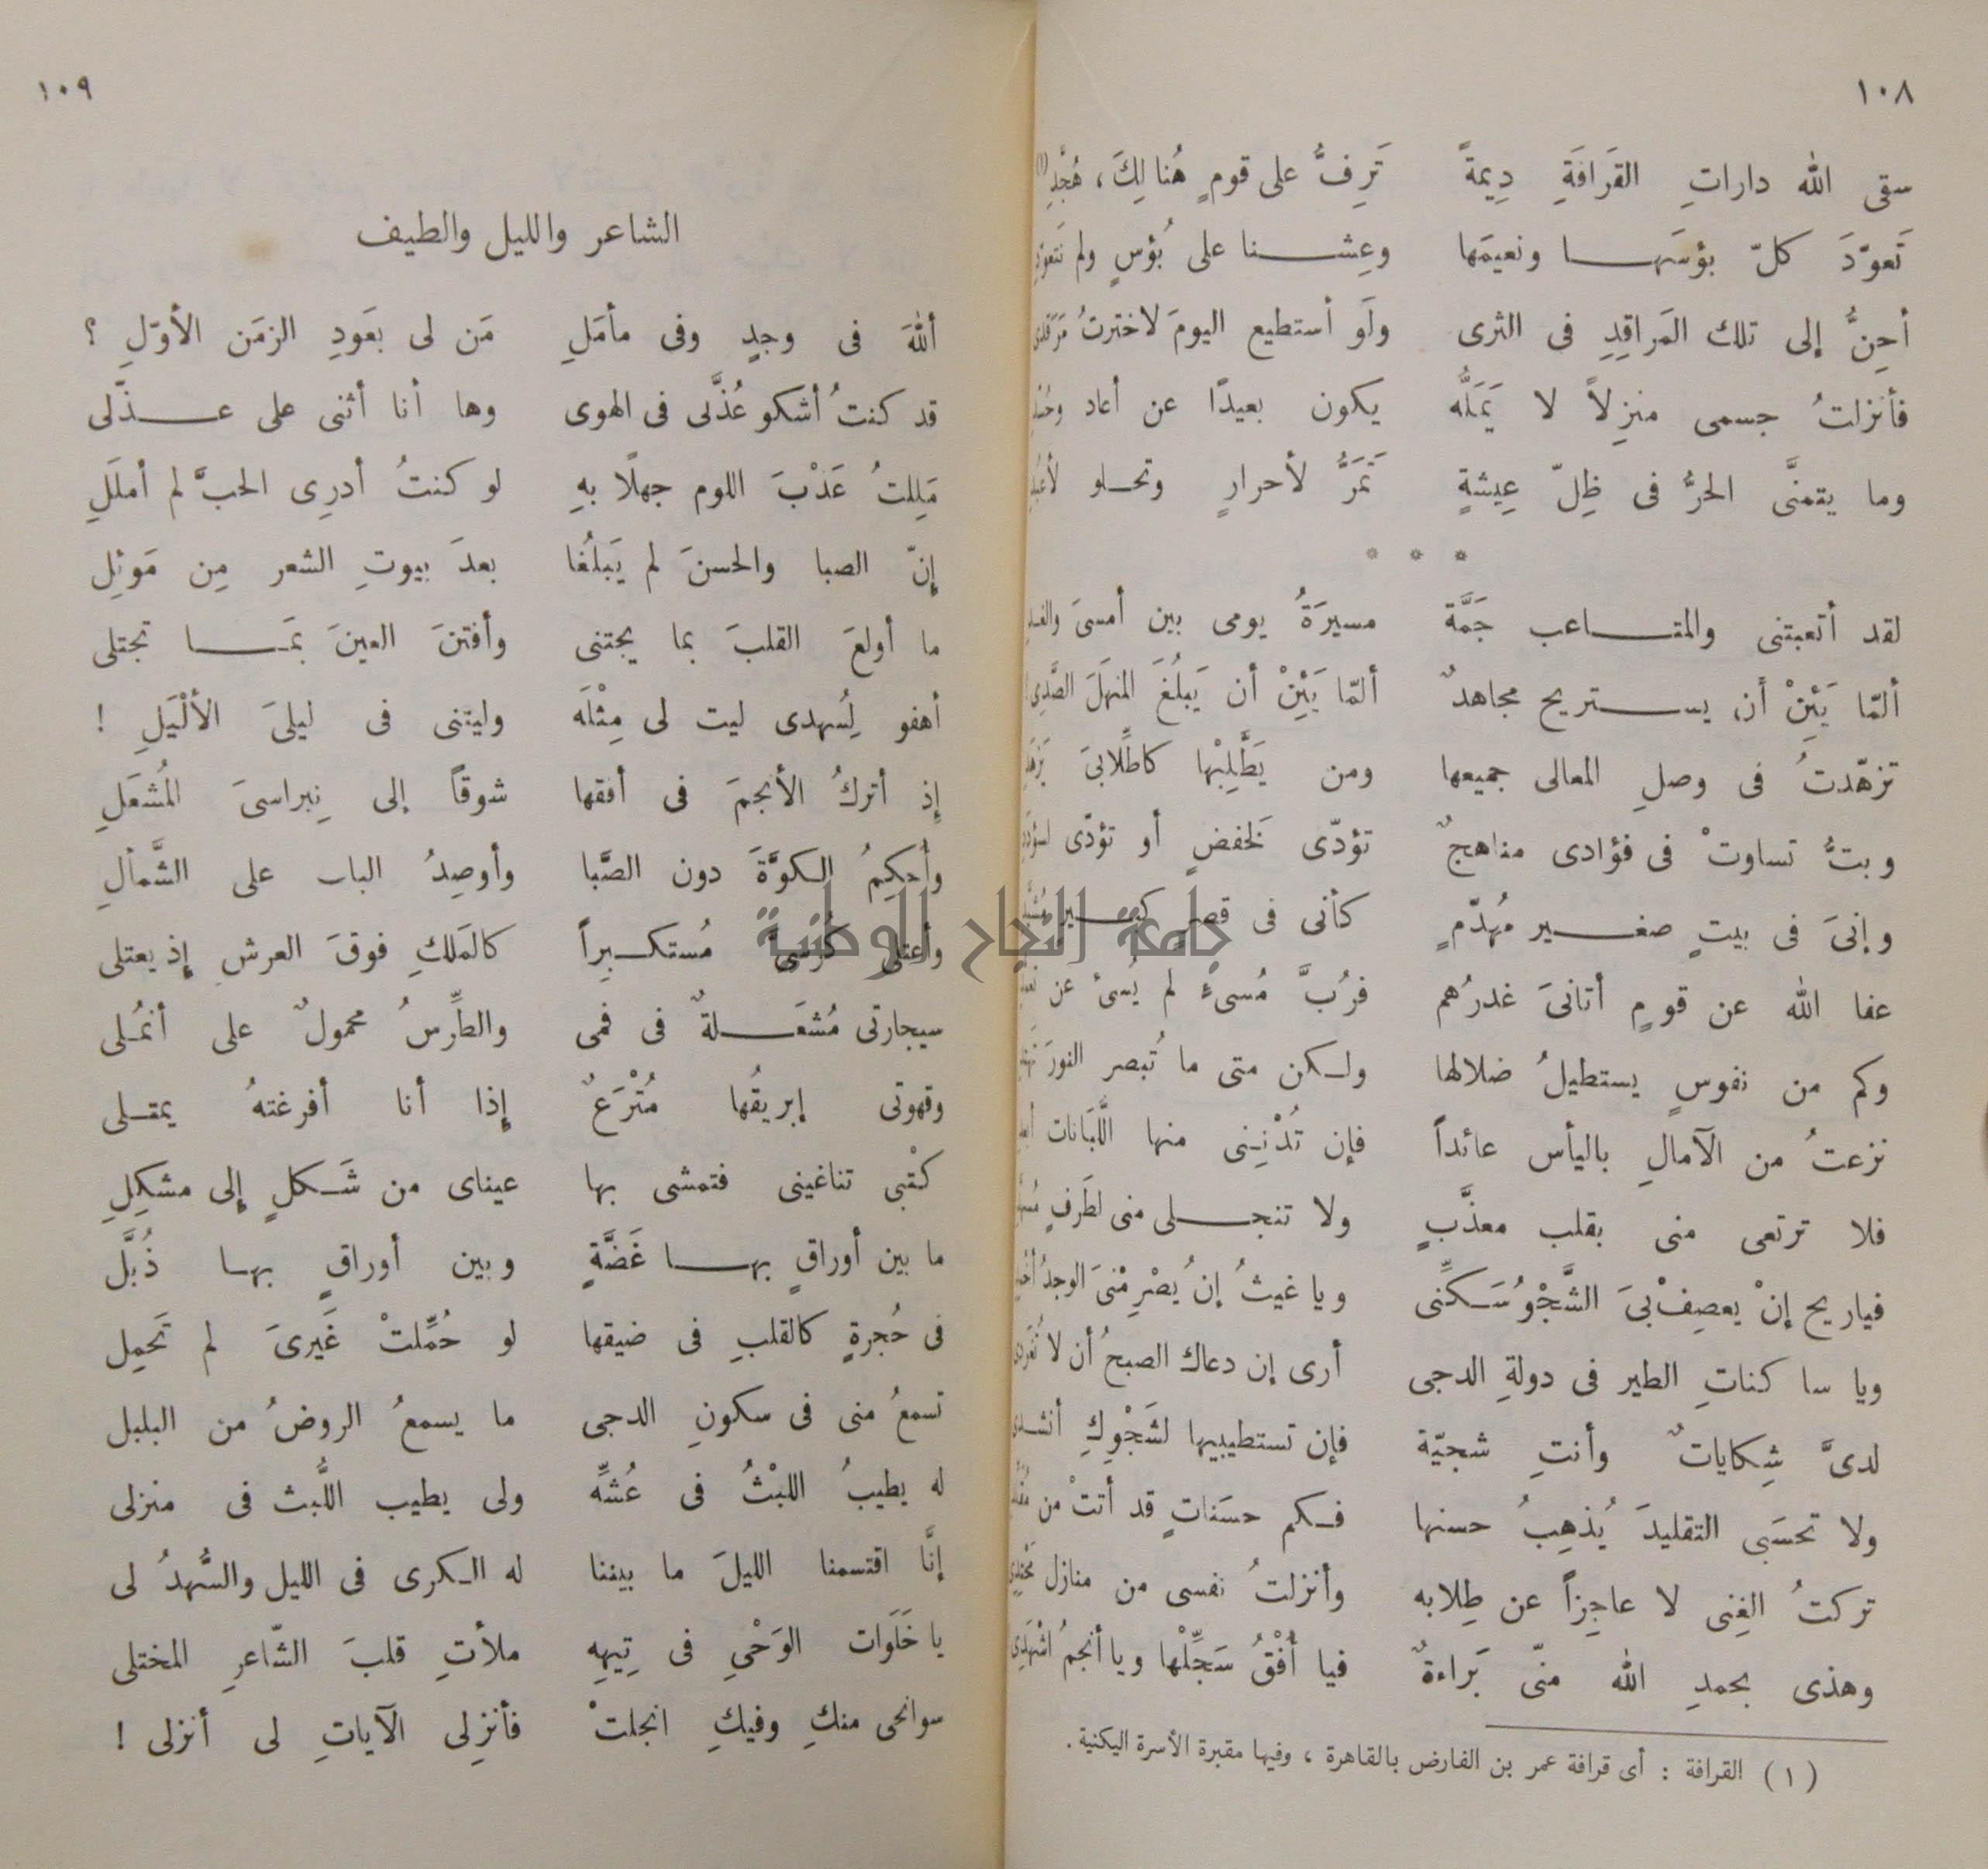 ١٠٨
سقى الله داراتِ القَرافَةِ دِيمةً تَرِفُّ على قومٍ هُنا لِكَ ، هُجَّدِ (١)
تَعوّدَ كلّ بؤسَها ونعيمَها وعِشنا على بُؤسٍ ولم نَتعوّدِ
أحِنُّ إلى تلك المَراقِدِ فى الثرى ولَو أستطيع اليومَ لاخترتُ مَرقدى
فأنزلتُ جسمى منزِلاً لا يَمَلُّه يكون بعيدًا عن أعاد
وما يتمنَّى الحرُّ فى ظِلّ عِيشةٍ تَمَرُّ لأحرارٍ وتحلو لأعبُدِ
* * *
لقد أتعبتنى والمتاعب جَمَّة مسيرَةُ يومى بين أمسىَ والغدِ
ألمّا يَئِنْ أن يستريح مجاهدٌ ألمّا يَئِنْ أن يَبلُغَ المنهَلَ الصَّدِى
تزهّدتُ فى وصلِ المعالى جميعها ومن يَطَّلِبْها كاطِّلابىَ يَزهَدِ
وبتُّ تساوتْ فى فؤادى مناهجٌ تؤدّى لخفضٍ أو تؤدّى لسؤددِ
وإنىَ فى بيتٍ صغير مُهدّمٍ كأنى فى قصرٍ كبير مُشيَّدِ
عفا الله عن قومٍ أتانىَ غدرُهم فرُبَّ مُسىءٍ لم يُسئ عن
وكم من نفوسٍ يستطيلُ ضلالها ولكن متى ما تُبصر النورَ
نزعتُ من الآمالِ باليأس عائداً فإن تُدْنِنِى منها اللَّبَانات
فلا ترتعى منى بقلب معذَّبٍ ولا تنجلى منى لطَرفٍ
فياريح إنْ يعصِفْ بىَ الشَّجْوُ سَكنِّى ويا غيثُ إنْ يُضْرِمْنىَ الوجدُ
ويا ساكناتِ الطير فى دولةِ الدجى أرى إن دعاك الصبحُ أن لا تُغَردى
لدىَّ شِكاياتٌ وأنتِ شجيّة فإن تستطيبيها لشَجْوِكِ أنشدى
ولا تحسَبى التقليدَ يُذهِبُ حسنها فكم حسَناتٍ قد أتتْ من مُقلِّدِ
تركتُ الغِنى لا عاجِزاً عن طِلابه وأنزلتُ نفسى من منازل مَحْتِدى
وهذى بحمدِ الله منّى بَراءةٌ فيا أُفْقُ سَجِّلْها ويا أنجمُ اشْهَدِى
(١) القرافة : أى قرافة عمر بن الفارض بالقاهرة ، وفيها مقبرة الأسرة اليكنية .
١٠٩
الشاعر والليل والطيف
أللهَ فى وجدٍ وفى مأمَلِ مَن لى بعَودِ الزمَن الأوّلِ ؟
قد كنتُ أشكو عُذَّلى فى الهوى وها أنا أثنى على عذّلى
مَلِلتُ عَذْبَ اللوم جهلًا بهِ لو كنتُ أدرِى الحبَّ لم أملَلِ
إنّ الصبا والحسنَ لم يَبلُغا بعدَ بيوتِ الشعر مِن مَوئِل
ما أولعَ القلبَ بما يجتنى وأفتنَ العينَ بمَا تجتلى
أهفو لِسُهدى ليت لى مِثْلَه وليتنى فى ليلىَ الألْيَلِ !
إذ أتركُ الأنجمَ فى أفقها شوقاً إلى نِبراسىَ المُشعَلِ
وأُحكِمُ الكوَّةَ دون الصَّبا وأوصِدُ الباب على الشَّمألِ
وأعتلى كُرسىَّ مُستكبراً كالمَلكِ فوقَ العرشِ إذ يعتلى
سيجارتى مُشعَلةٌ فى فمى والطِّرسُ محمولٌ على أنمُلى
وقهوتى إبريقُها مُتْرَعٌ إذا أنا أفرغتهُ يمتلى
كتْبى تناغينى فتمشى بها عيناى من شَكلٍ إلى مشكِلِ
ما بين أوراقٍ بها غَضَّةٍ وبين أوراقٍ بها ذُبَّل
فى حُجرةٍ كالقلبِ فى ضيقها لو حُمِّلتْ غَيرىَ لم تَحمِل
تسمعُ منى فى سكونِ الدجى ما يسمعُ الروضُ من البلبل
له يطيبُ اللبْثُ فى عُشِّه ولى يطيب اللَّبث فى منزلى
إنَّا اقتسمنا الليلَ ما بيننا له الكرى فى الليل والسُّهدُ لى
يا خَلَوَات الوَحْىِ فى تِيهِهِ ملأتِ قلبَ الشّاعرِ المختلى
سوانحى منكِ وفيكِ انجلتْ فأنزِلى الآياتِ لى أنزلى !
جامعة النجاح الوطنية